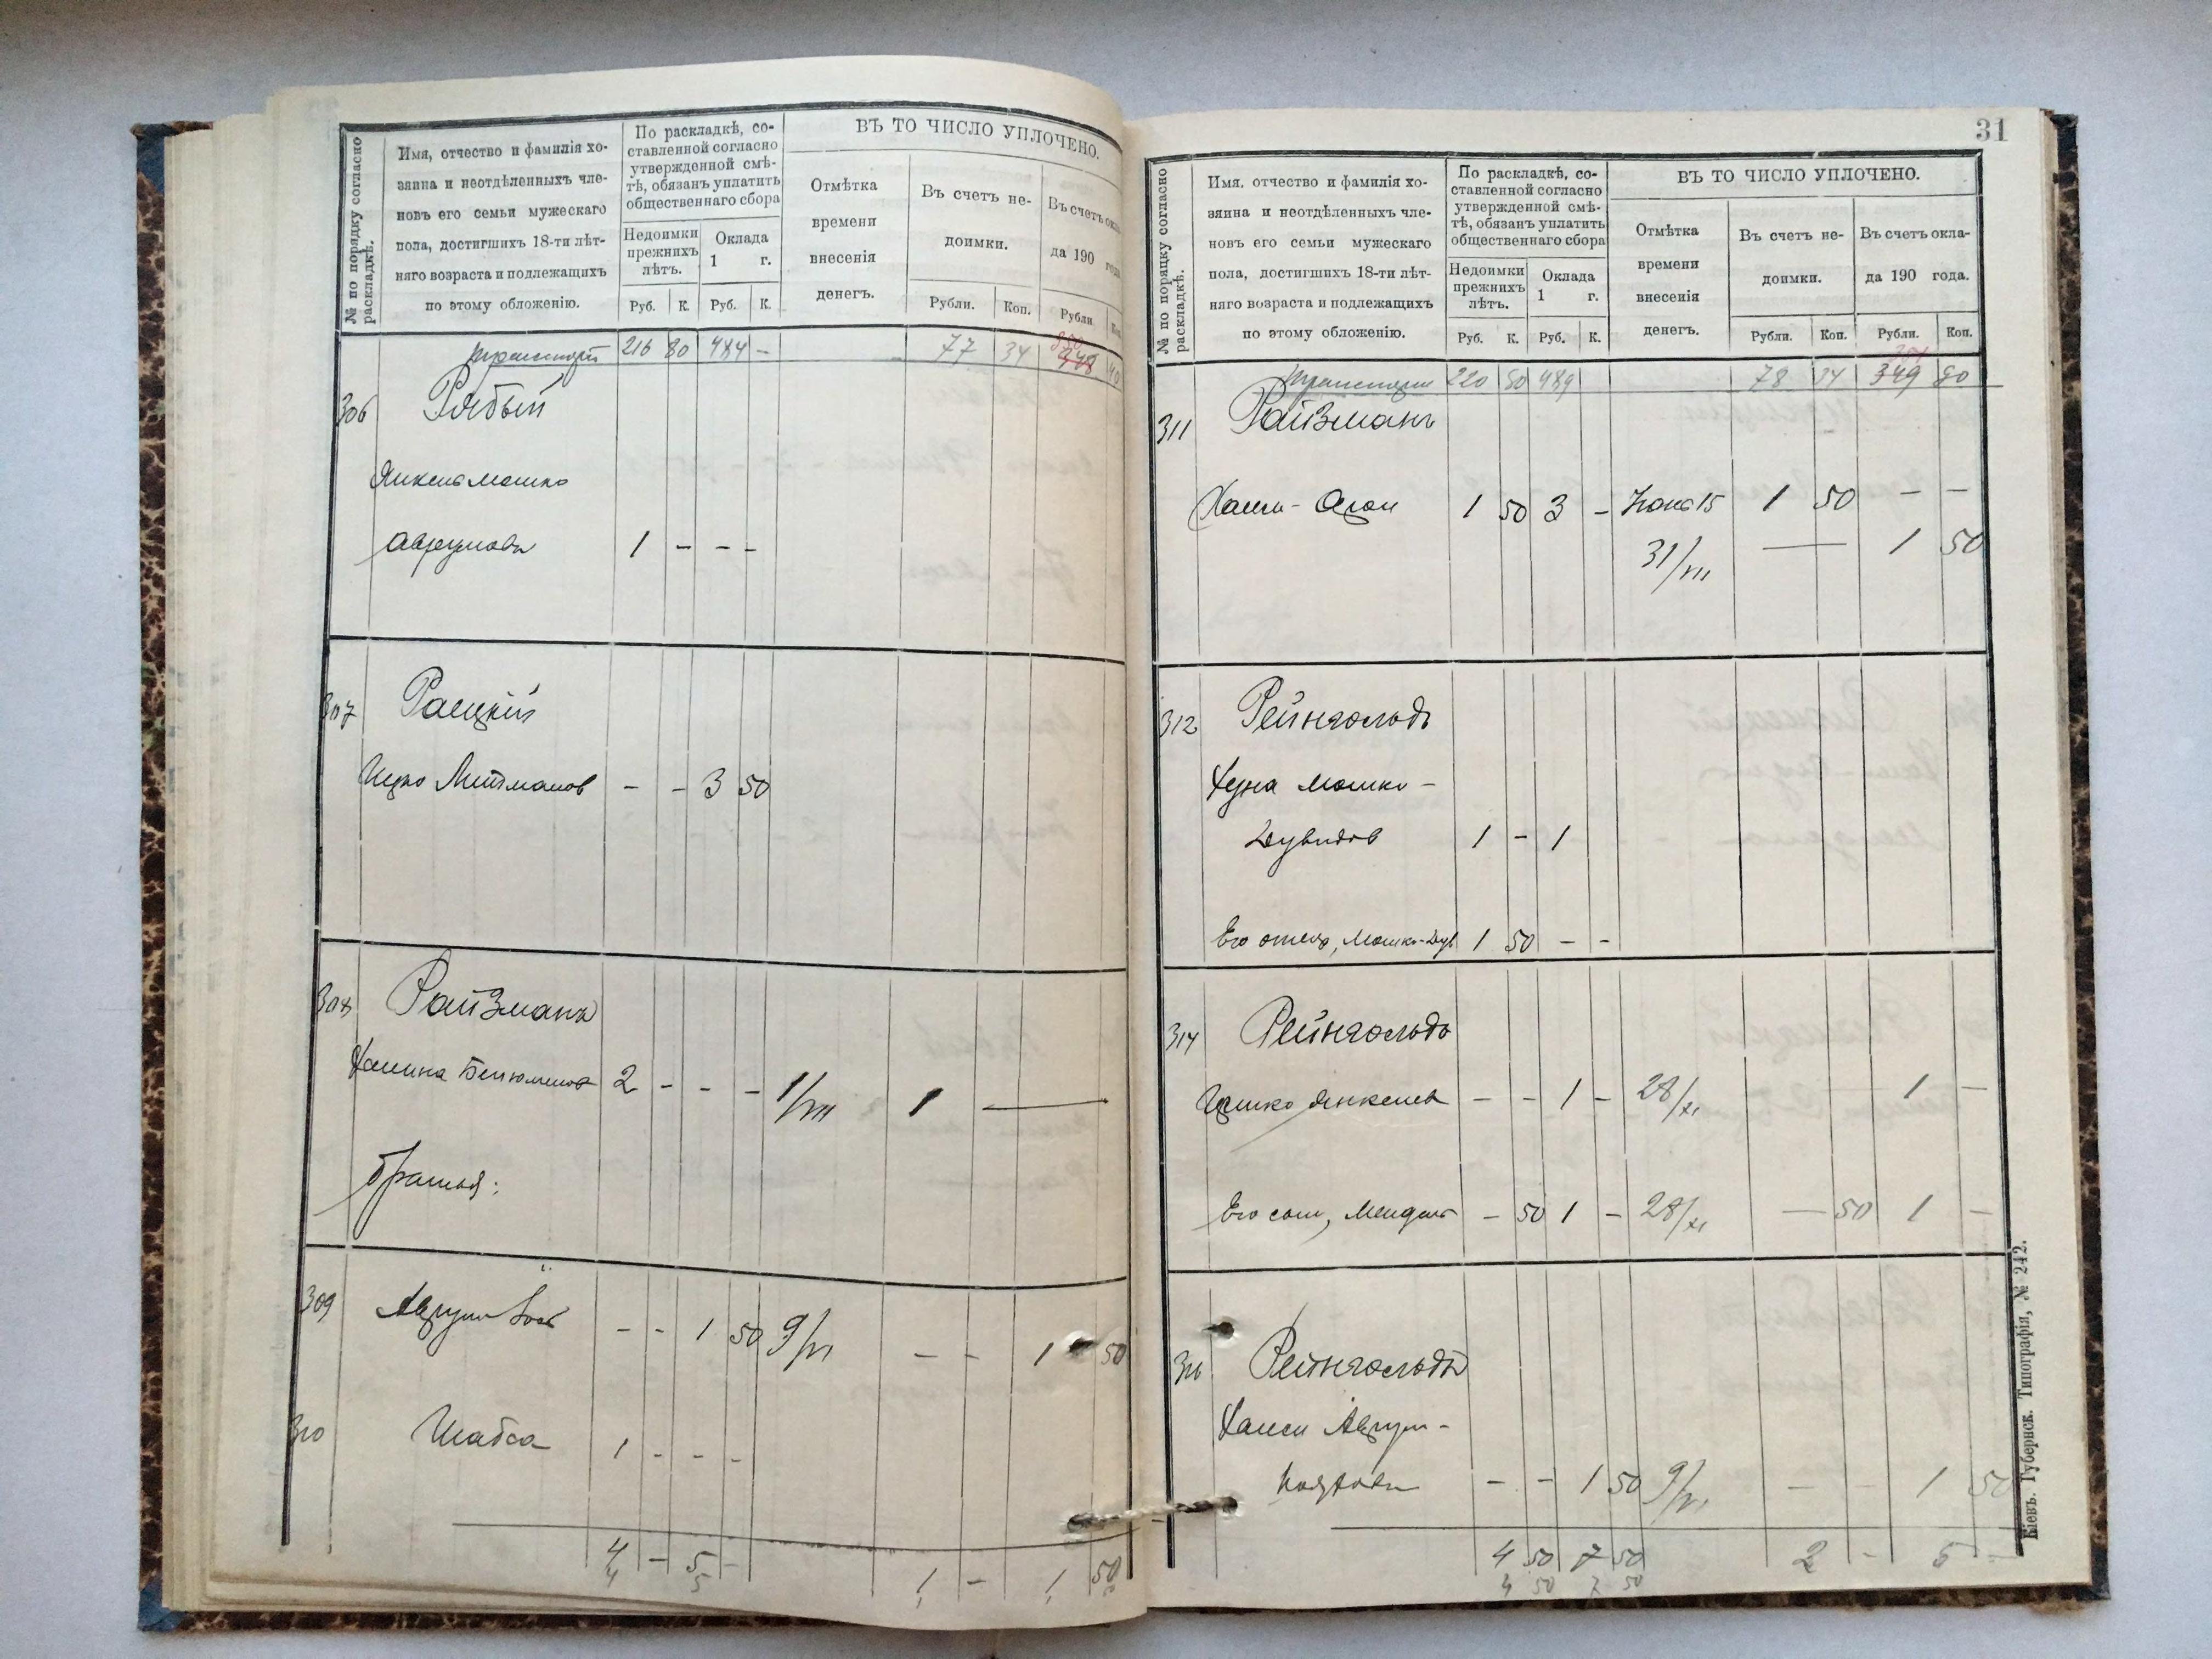 № по порядку согласно
раскладкѣ.
Имя, отчество и фамилія хо-
зяина и неотдѣленныхъ чле-
новъ его семьи мужескаго
пола, достигшихъ 18-ти лѣт-
няго возраста и подлежащихъ
по этому обложенію.
По раскладкѣ, со-
ставленной согласно
утвержденной смѣ-
тѣ, обязанъ уплатить
общественнаго сбора
Недоимки
прежнихъ
лѣтъ.
Оклада
1 г.
Руб. К. Руб. К.
ВЪ ТО ЧИСЛО УПЛОЧЕНО.
Отмѣтка
времени
внесенія
денегъ.
Въ счетъ не-
доимки.
Рубли. Коп.
Въ счетъ окла-
да 190 года
Рубли
транспортъ 216 80 484 - 77 34 348 40
306 Рябый
Янкель мошко
Аврумовъ 1 - - -
307 Раецкій
Ицко Лейзманов - - 3 50
308 Райзманъ
Ханина Бенюминов 2 - - - 1/VII 1 —
братья:
309 Аврум Іос - - 1 50 9/VI - - 1 50
310 Шабса 1 - - -
4 - 5 - 1 - 1 50
4 5
31
№ по порядку согласно
раскладкѣ.
Имя, отчество и фамилія хо-
зяина и неотдѣленныхъ чле-
новъ его семьи мужескаго
пола, достигшихъ 18-ти лѣт-
няго возраста и подлежащихъ
по этому обложенію.
По раскладкѣ, со-
ставленной согласно
утвержденной смѣ-
тѣ, обязанъ уплатить
общественнаго сбора
Недоимки
прежнихъ
лѣтъ.
Оклада
1 г.
Руб. К. Руб. К.
ВЪ ТО ЧИСЛО УПЛОЧЕНО.
Отмѣтка
времени
внесенія
денегъ.
Въ счетъ не-
доимки.
Рубли. Коп.
Въ счетъ окла-
да 190 года.
Рубли. Коп.
транспортъ 220 80 489 78 34 349 80
311 Райзманъ
Хаим-Арон 1 50 3 - 15 1 50 - -
31/VII — 1 50
312 Рейнгольдъ
Хуна Мошко-
Дувидов 1 - 1
Его отецъ, Мошко-Дув 1 50 - -
314 Рейнгольдъ
Ицко Янкелев - - 1 - 28/XI 1 —
Его сын, Мендель - 50 1 - 28/XI — 50 1 —
316 Рейнгольдъ
Хаим Аврум-
- - 1 50 9/VI - - 1 50
4 50 7 50 2 - 5 -
4 50 7 50
Кіевъ. Губернск. Типографія, № 242.